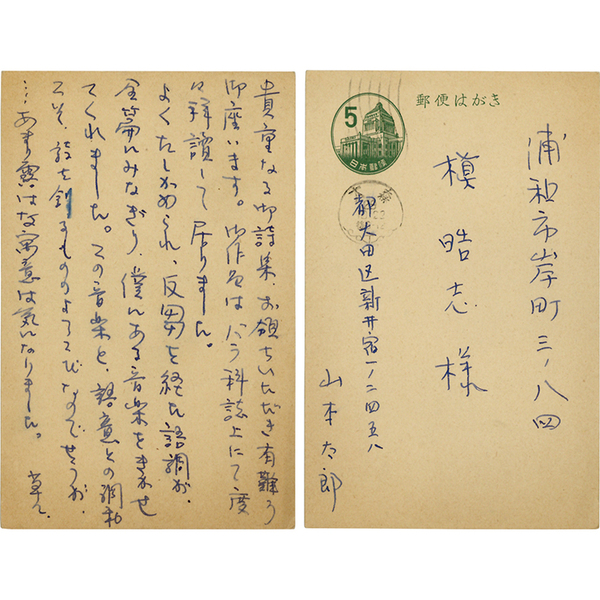 貴重なる御詩集、お頒ちいただき有難う
御座います。御作品はバラ科誌上にて度
々拝讀して居りました。
よくたしかめられ、反芻を経た語調が、
全篇にみなぎり、僕にある音楽をきかせ
てくれました。この音楽と、語意との調和
こそ、詩を創るもののよろこびなのでせうが、
…あまり露はな寓意は気になりました。 草々
郵便はがき
5
日本郵便
浦和市岸町三ノ八四
槇晧志様
都大田区新井宿一ノ二四五八
山本太郎